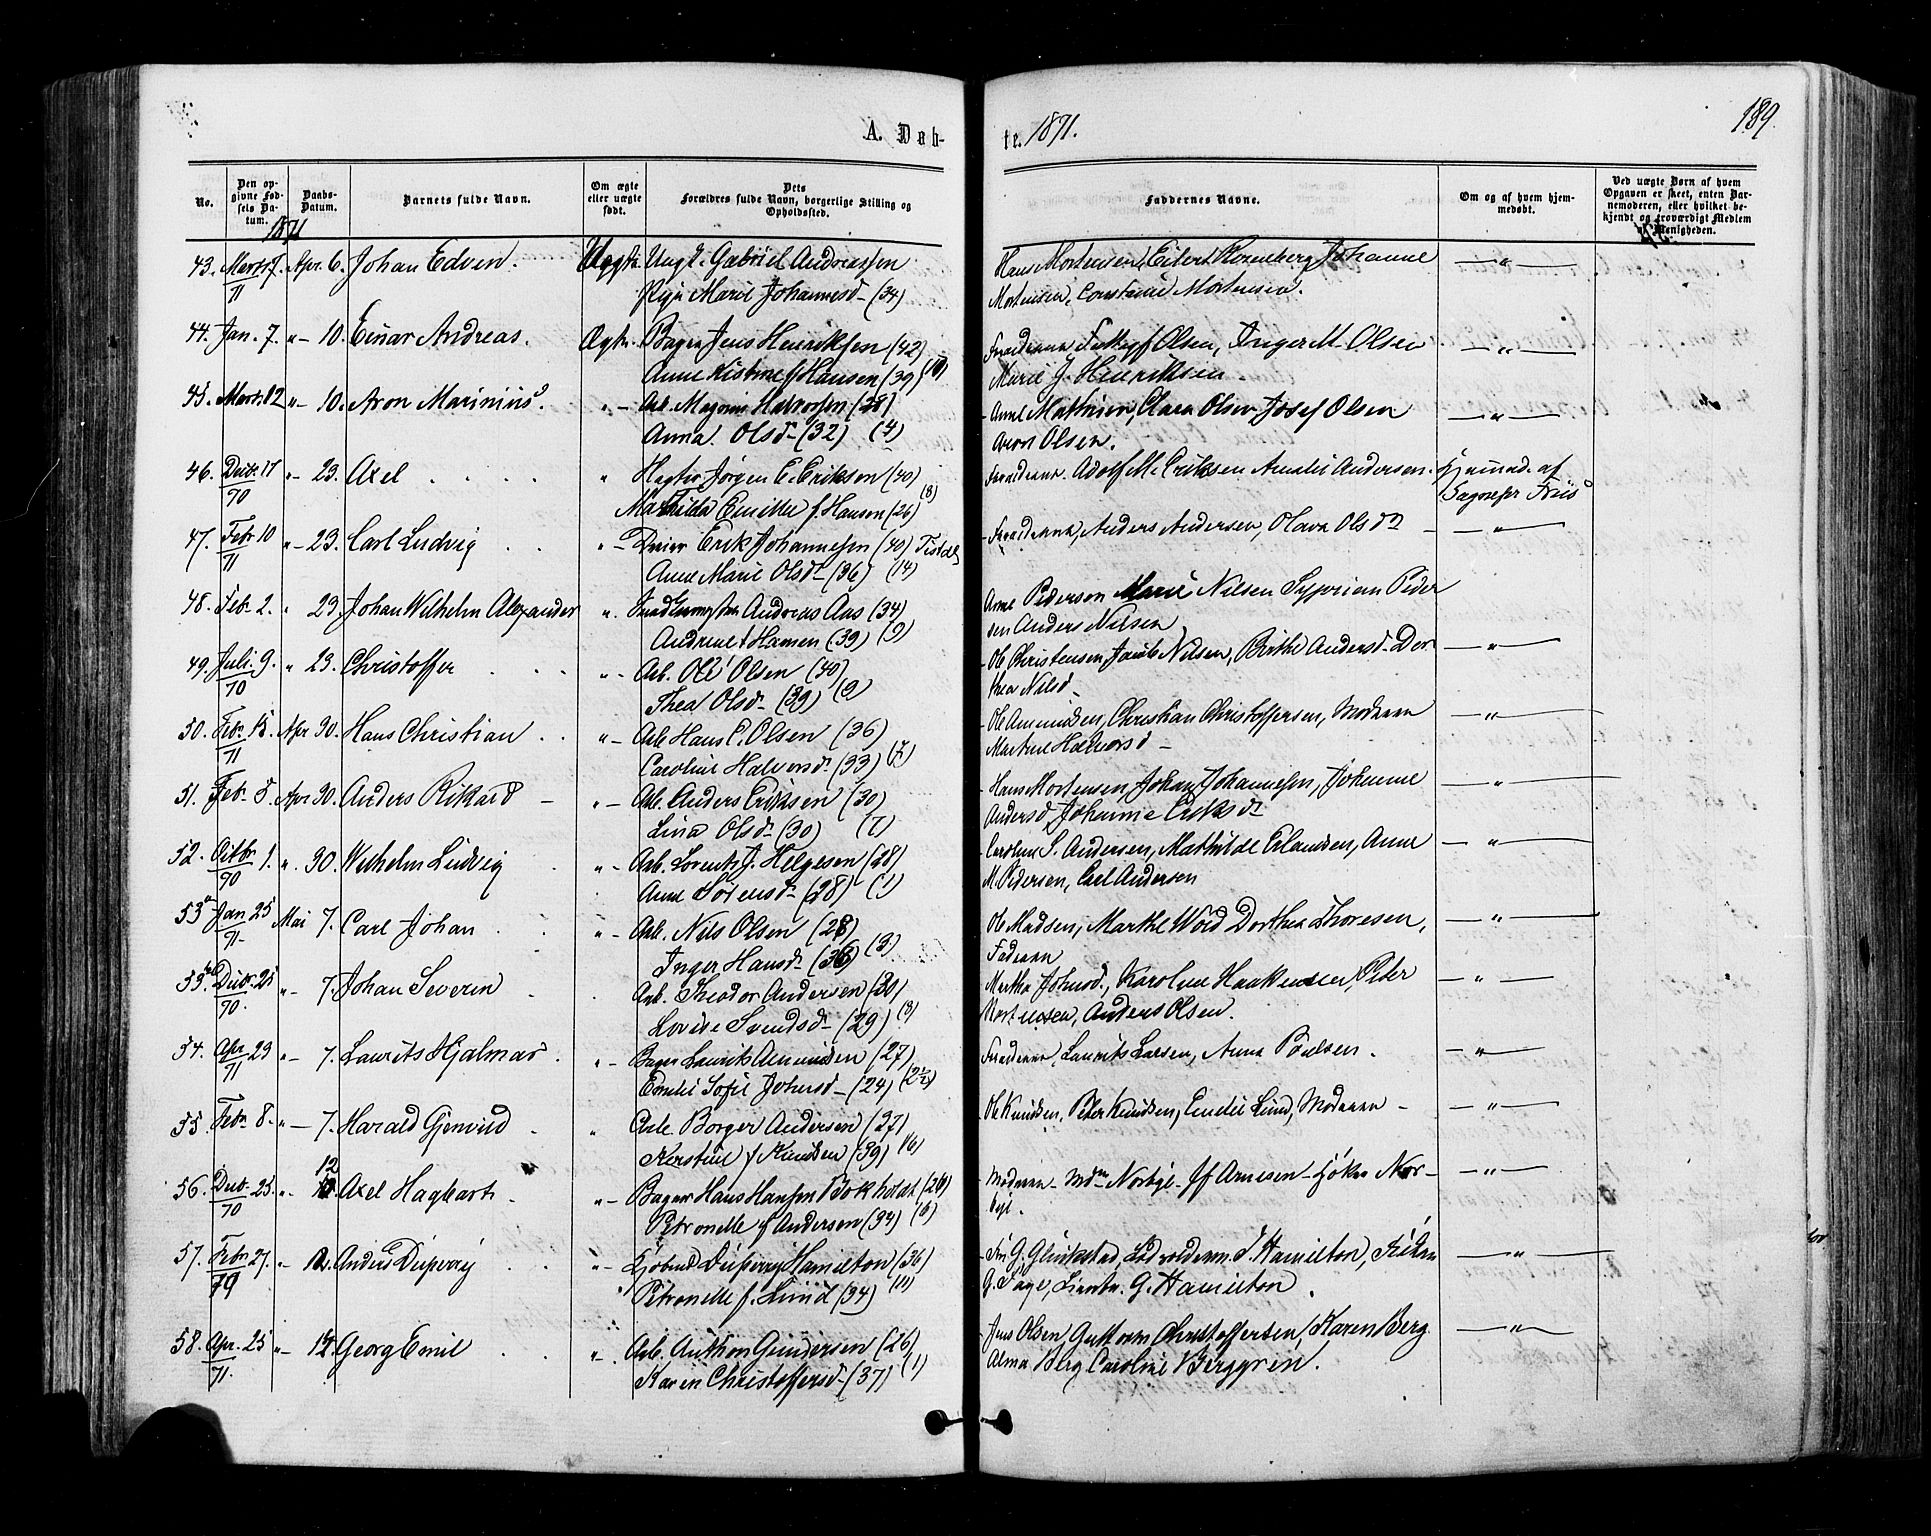 A. Døb-
te. 1871.
189.
No.
Den op-
givne Fød-
sels Da-
tum.
Daabs-
Datum.
Barnets fulde Navn.
Om ægte
eller uægte
født.
Dets
Forældres fulde Navn, borgerlige Stilling og
Opholdssted.
Faddernes Navne.
Om og af hvem hjem-
medøbt.
Ved uægte Børn af hvem
Opgaven er skeet, enten Bar-
nemoderen, eller hvilket be-
kjendt og troværdigt Medlem
af Menigheden.
1871
43. Marts 7. Apr. 6. Johan Edvin. Uægte. Ungk. Gabriel Andreassen
71 Pige Marie Johannesd- (34)
Hans Mortensen, Eilert Rosenberg, Johanne
Mortensen, Constance Mortensen.
44. Jan. 7. " - 10. Einar Andreas. Ægte. Bager Jens Henriksen (42)
Anne Kistine f Hansen (39)
Forældrene, Olsen, Inger M. Olsen
Marie J. Henriksen.
45. Marts 12 " - 10. Aron Marinius. " - Arb. Magnus Halvorsen (28)
Anna Olsd- (32) (4)
Anne Mathisen, Clara Olsen, Josef Olsen
Aron Olsen.
46. Decbr. 17 " - 23. Axel " Jørgen E. Eriksen (40)
70 Mathilda Emilie f. Hansen (26) (8)
Forældrene. Adolf M. Eriksen Amalie Andersen. Hjemmed. af
Friis
47. Febr 10 " - 23. Carl Ludvig " - Erik Johannesen (40) Tistdl
71 Anne Marie Olsd- (36) (14)
Forældrene, Anders Andersen, Olava Olsdr
48. Febr. 2. " 23. Johan Wilhelm Alexander " Andreas Aas (34)
Andrine f Hansen (39) (9)
Anne Pederson Marie Nilsen Syprian Peder
sen Anders Nilsen
49. Juli 9. " 23. Christoffer " - Arb. Ole Olsen (40)
70 Thea Olsd- (39) (9)
Ole Christensen, Jacob Nilsen, Birthe Andersd. Dor
thea Nilsd-
50. Febr. 15. Apr 30. Hans Christian " - Arb Hans C. Olsen (36)
71 Caroline Halvorsd- (33)
Ole Amundsen, Christian Christoffersen, Moderen
Martine Halvorsd -
51. Febr. 8. Apr 30. Anders Rikard - " - Arb. Anders Eriksen (30)
Lina Olsd- (30) (7)
Hans Mortensen, Johan Johannesen, Johanne
Andersd, Johanne Eriksdr
52. Octbr 1. " 30. Wilhelm Ludvig " - Arb. Lorents J. Helgesen (28)
70 Anne Sørensd- (28) (1)
Caroline S. Andersen, Mathilde Erlandsen, Anne
M. Pedersen, Carl Andersen
53a Jan 25 Mai 7. Carl Johan " - Arb. Nils Olsen (28)
71. Inger Hansd- (36) (3)
Ole Madsen, Marthe Wold Dorthea Thoresen,
Faderen
53b Decbr. 25 " - 7. Johan Severin Arb. Theodor Andersen (30)
70. Lovise Svendsd- (29) (3)
Martha Johnsd., Karoline Haakensen, Peter
Mortensen, Anders Olsen.
54. Apr 23 " - 7. Laurits Hjalmar " - Bager Laurits Amundsen (27)
71 Emilie Sofie Johnsd- (24) (2½)
Forældrene, Laurits Larsen, Anna Poulsen.
55. Febr 8. " - 7. Harald Gjervind " Arb. Borger Andersen (27)
Kerstine f Knudsen (39) (6)
Ole Knudsen, Peter Knudsen, Emilie Lund, Moderen -
56. Decbr. 25. " - 12 Axel Hagbart " - Bager Hans Hansen Bokholdt (26)
70 Petronelle f Andersen (34) (6)
Moderen - Mdm Norbye - Jf Arnesen - Frøken Nor-
bye.
57. Febr 27. " 12. Anders Duperrij " - Kjøbmd Duperrij Hamilton (36)
70 Petronelle f. Lund (34) (11)
Fru G. Glückstad, I. Hamilton, Frøken
G. Faye, Lieutn. G. Hamilton.
58. Apr. 25 " - 12 Georg Emil " - Arb. Anthon Gundersen (26)
71. Karen Christoffersd- (37) (1)
Jens Olsen Guttorm Christoffersen, Karen Berg
Alma Berg Caroline Berggren.